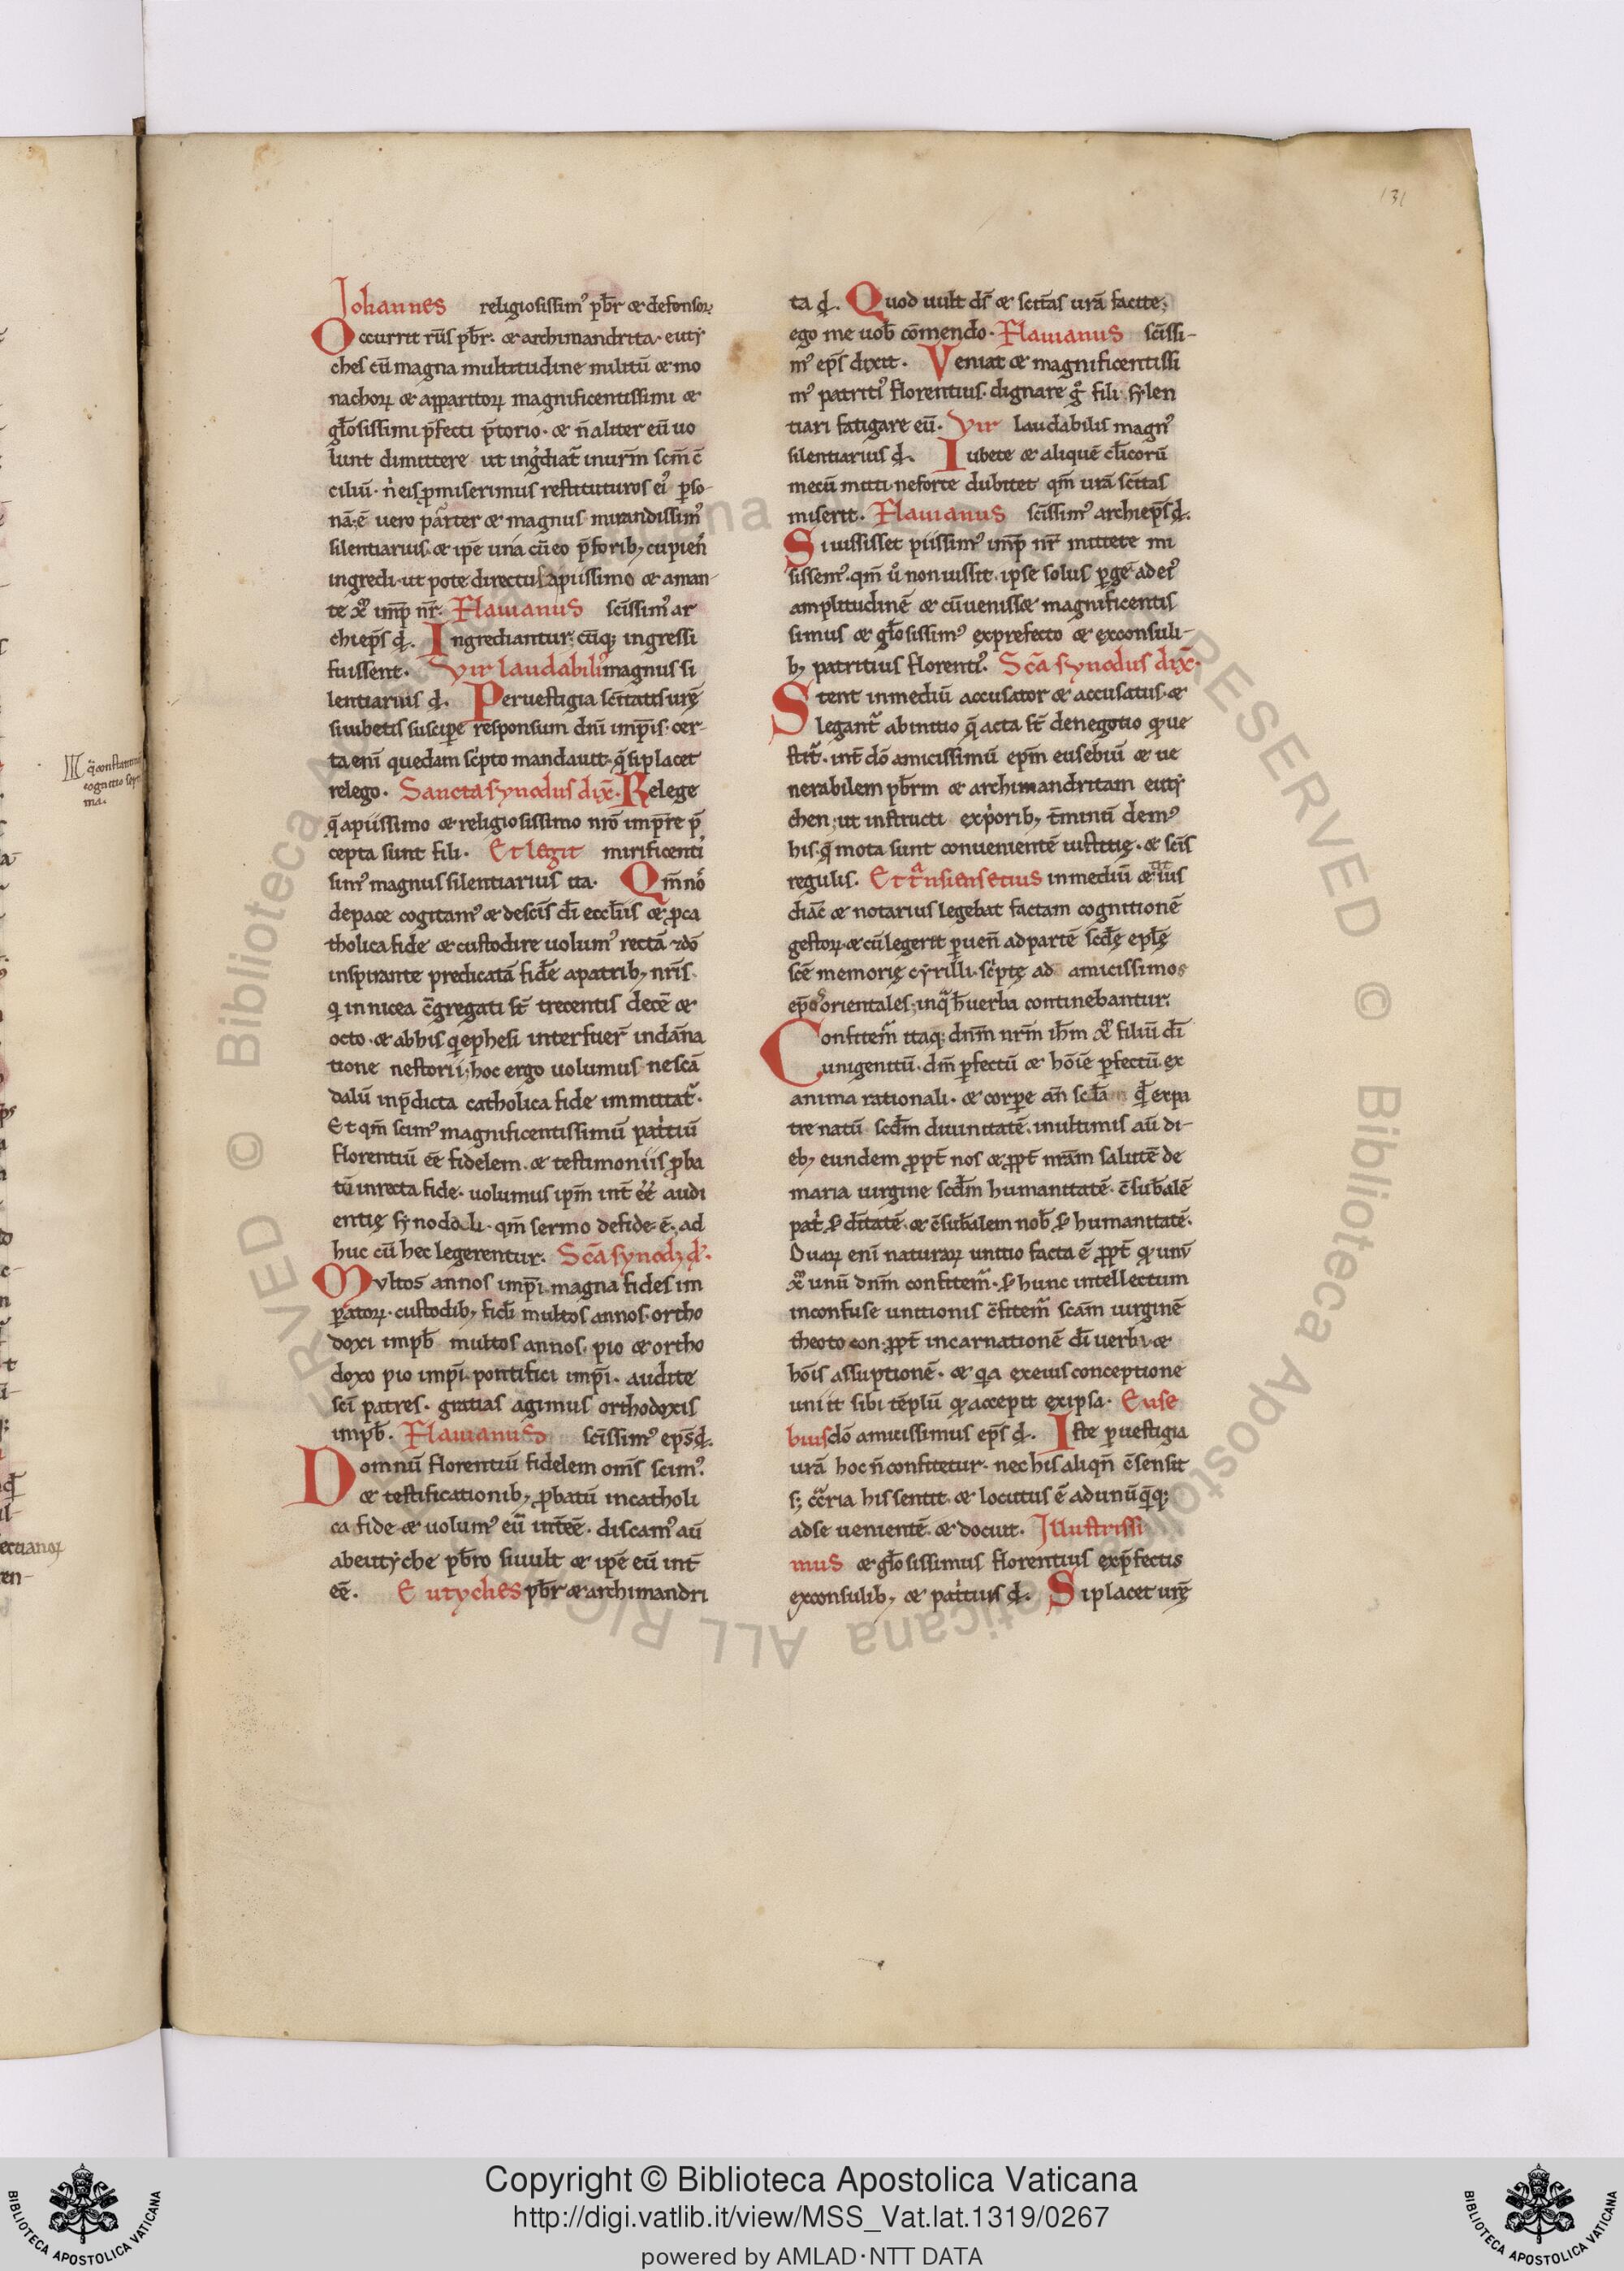 131
Johannes religiosissim᷒ pb̄r & defensoꝝ
Occurrit rīīs pb̄r. & archimandrita. euty
ches cū magna multitudine militū & mo
nachoꝝ & apparitoꝝ magnificentissimi &
gl̄osissimi p̄fecti p̄torio. & n̄ aliter eū uo
lunt dimittere ut ing̍diat̄ in ur̄m sc̄m c̄
ciliū. n̍ eis ꝓmiserimus restituturos ei᷒ p̱so
nā. ē uero pariter & magnus mirandissim᷒
silentiarius. & ip̄e una cū eo p̄ forib; cupien̄
ingredi. ut pote directus a piissimo & aman-
te xp̄o imp̄ nr̄. Flauianus sc̄issim᷒ ar
chiep̄s đ. Ingrediantur. cūq; ingressi
fuissent. Vir laudabilis magnus si
lentiarius đ. Per uestigia sc̄itatis ur̄ę
si iubetis suscip̱e responsum dn̄i imp̄is. cer-
ta eni quedam sc̍pto mandauit. q̄ si placet
relego. Sancta synodus dix̄. Relege
q̄ a piissimo & religiosissimo nr̄o imp̄re p̄
cepta sunt fili. Et legit mirificenti
sim᷒ magnus silentiarius ita. Qm̄ nos
de pace cogitam᷒ & de sc̄is dī eccl̄iis & ꝓ ca
tholica fide & custodire uolum᷒ rectā & dō
inspirante predicatā fidē a patrib; nr̄is.
qui in nicea c̄gregati st̄ trecentis decē &
octo. & ab his qui ephesi interfuer̄ in dāna
tione nestorii; hoc ergo uolumus ne scā
dalū in p̄dicta catholica fide immitat᷑.
Et qm̄ scim᷒ magnificentissimū pat̍tiū
florentiū ēē fidelem. & testimoniis ꝓba
tū in recta fide. uolumus ip̄m int̄ ēē audi
entię synodali. qm̄ sermo de fide ē. ad
huc cū hec legerentur. Sc̄a synod; đ.
Multos annos imp̄i. magna fides im
p̱atoꝝ. custodib; fidī multos annos. ortho
doxi impb̄ multos annos. pio & ortho
doxo pio imp̄i. pontifici imp̄i. audite
sc̄i patres. gratias agimus orthodoxis
impb̄. Flauianus sc̄issim᷒ ep̄s đ.
Domnū florentiū fidelem om̄s scim᷒.
& testificationib; ꝓbatū in catholi
ca fide & uolum᷒ eū int̄ēē. discam᷒ aū
ab eutyche pb̄ro si uult & ip̄e eū int̄
ēē. Eutyches pb̄r & archimandri
ta đ. Quod uult ds̄ & sc̄itas ur̄ā facite;
ego me uob̄ cōmendo. Flauianus sc̄issi-
m᷒ ep̄s dixit. Veniat & magnificentissi
m᷒ patriti᷒ florentius. dignare g̊ fili sylen
tiari fatigare eū. Vir laudabilis magn᷒
silentiarius đ. Iubete & aliquē cl̄icorū
mecū mitti. ne forte dubitet qm̄ ur̄ā sc̄itas
miserit. Flauianus sc̄issim᷒ archiep̄s đ.
Si iussisset piissim᷒ imp̄ nr̄ mittere mi
sissem᷒. qm̄ ů non iussit. ipse solus p̱ge ad ei᷒
amplitudinē & cū uenisset magnificentis
simus & gl̄osissim᷒ ex prefecto & exconsuli-
b; patritius florenti᷒. Sc̄a synodus dix̄.
Stent in mediū accusator & accusatus. &
legant᷑ ab initio q̄ acta st̄ de negotio qd̄ ue
stit᷑. int̄ dō amicissimū ep̄m eusebiū & ue
nerabilem pb̄rm & archimandritam euty
chen; ut instructi ex p̍orib; t̄minū dem᷒
his. q̄ mota sunt conuenientē iustitię. & sc̄is
regulis. Et t̄nsiens etius in mediū & ius
diāc̄ & notarius legebat factam cognitionē
gestoꝝ. & cū legerit ꝑ uen̄ ad partē scđę epl̄ę
sc̄ę memorię cyrilli. sc̍ptę ad amicissimos
ep̄os orientales; in qua h̄ uerba continebantur.
Confitem᷑ itaq; dn̄m nr̄m ih̄m xp̄m filiū dī
unigenitū. dm̄ ꝑfectū & hōīē ꝑfectū. ex
anima rationali. & corpe an̄ scl̄a qđ ex pa
tre natū scđm diuinitatē. in ultimis aū di-
eb; eundem ꝓpt̄ nos & ꝓpt̄ nr̄ām salutē de
maria uirgine scđm humanitatē. c̄sub̄alē
pat̍ s̄ dītatē. & c̄sub̄alem nob̄ s̄ humanitatē.
Duaꝝ eni naturaꝝ unitio facta ē ꝓpt̄ qd̄ unū
xp̄m unū dn̄m confitem᷑. s̄ hunc intellectum
inconfuse unitionis c̄fitem᷑ scām uirginē
theotocon. ꝓpt̄ incarnationē dī uerbi. &
hōīs assuptionē. & qua ex eius conceptione
uniit sibi tēplū qd̄ accepit ex ipsa. Euse
bius dō amicissimus ep̄s đ. Iste ꝑ uestigia
ur̄ā hoc n̄ confitetur. nec his aliqn̄ c̄sensit
s; c̄c̄ria his sentit. & locutus ē ad unūq̄q;
ad se uenientē. & docuit. Illustrissi
mus & gl̄osissimus florentius exp̄fectis
exconsulib; & pat̍tius đ. Si placet ur̄ę
Copyright © Biblioteca Apostolica Vaticana
http://digi.vatlib.it/view/MSS_Vat.lat.1319/0267
powered by AMLAD·NTT DATA